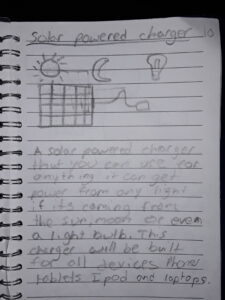 Solar powered charger 10
A solar powered charger
that you can use for
anything it can get
power from any light
if its coming from
the sun, moon or even
a light bulb. This
charger will be built
for all devices Phones
tablets Ipod and laptops.